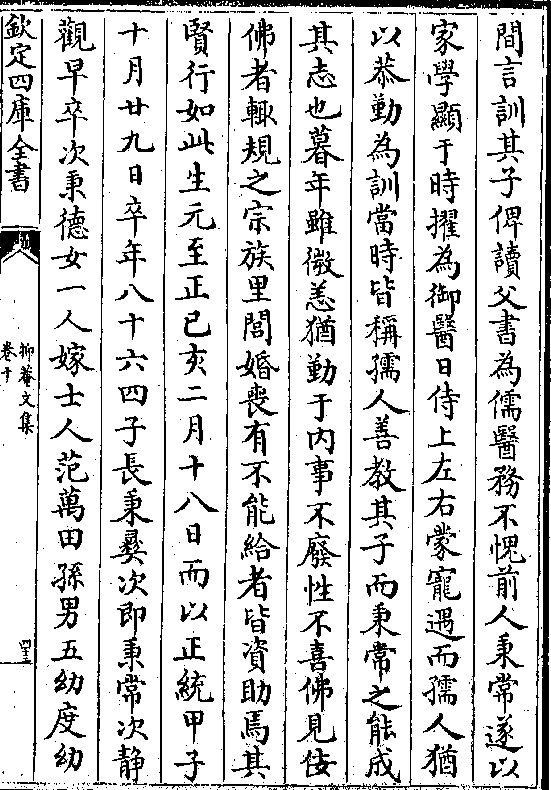 間言訓其子俾讀父書為儒醫務不愧前人秉常遂以
家學顯于時擢為御醫日侍上左右蒙寵遇而孺人猶
以恭勤為訓當時皆稱孺人善教其子而秉常之能成
其志也暮年雖微恙猶勤于内事不廢性不喜佛見佞
佛者輙規之宗族里閭婚喪有不能給者皆資助焉其
賢行如此生元至正己亥二月十八日而以正統甲子
十月廿九日卒年八十六四子長秉彜次即秉常次静
觀早卒次秉德女一人嫁士人范萬田孫男五幼度幼
欽定四庫全書
抑菴文集
卷十